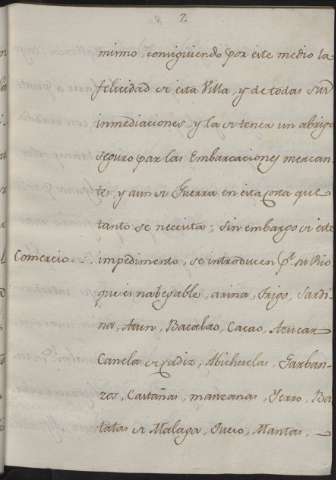 7.
mismo, consiguiendo por este medio la
felicidad de esta Villa, y de todas sus
inmediaciones, y la de tener un abrigo
seguro par las Embarcaciones mercan-
te, y aun de Guerra en esta costa que
tanto se necesita; sin embargo de este
Comercio impedimento, se introducen p.r su Rio
que es nabegable, arina, trigo, Sardi
na, Atun, Bacalao, Cacao, Azucar
Canela de Cadiz, Abichuelas, Garban-
zos, Castañas, manzanas, Yerro, Ba
tatas de Malaga, Queso, Mantas